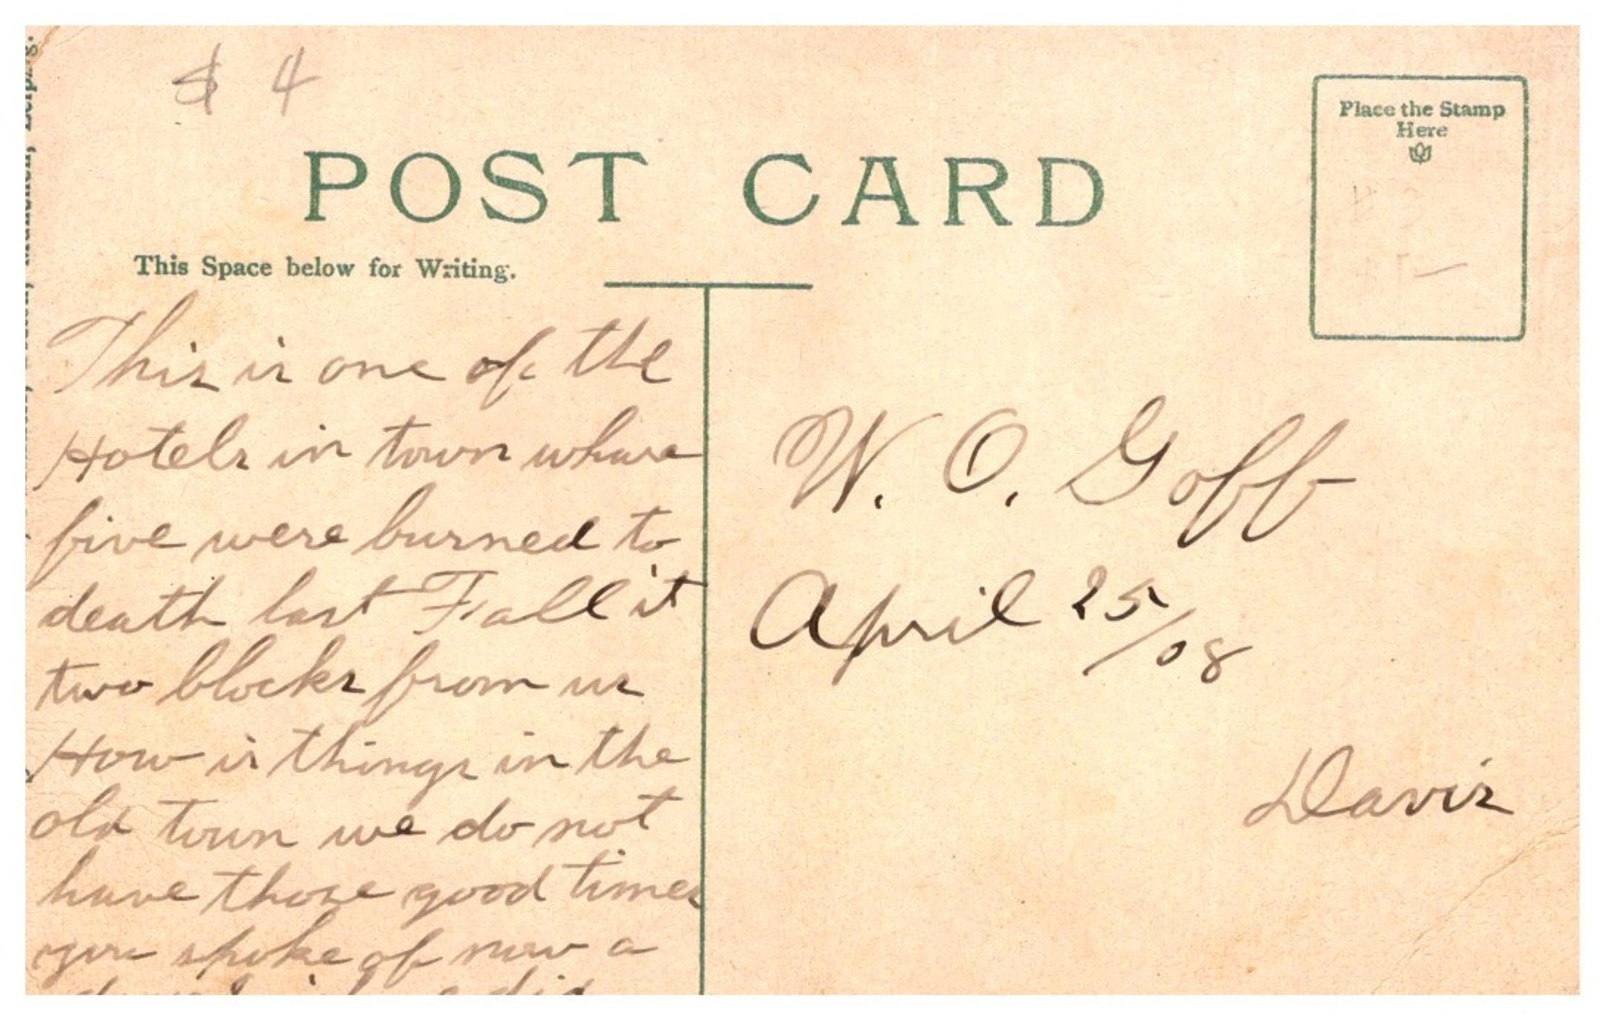 $ 4
POST CARD
Place the Stamp
Here
This Space below for Writing.
This is one of the
Hotels in town whare
five were burned to
death last Fall it
two blocks from us
How is things in the
old town we do not
have those good times
you spoke of now a
W. O. Goff
April 25/08
Davis